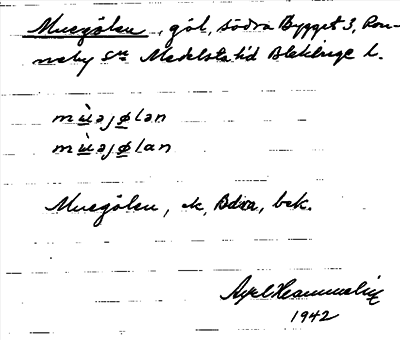 Muegölen, göl, södra Bygget 3, Ron-
neby sn Medelstad hd Blekinge l.
mùəjølən
mùəjølan
Muegölen, ek, Bdxa, bek.
Axel Hammelin
1942